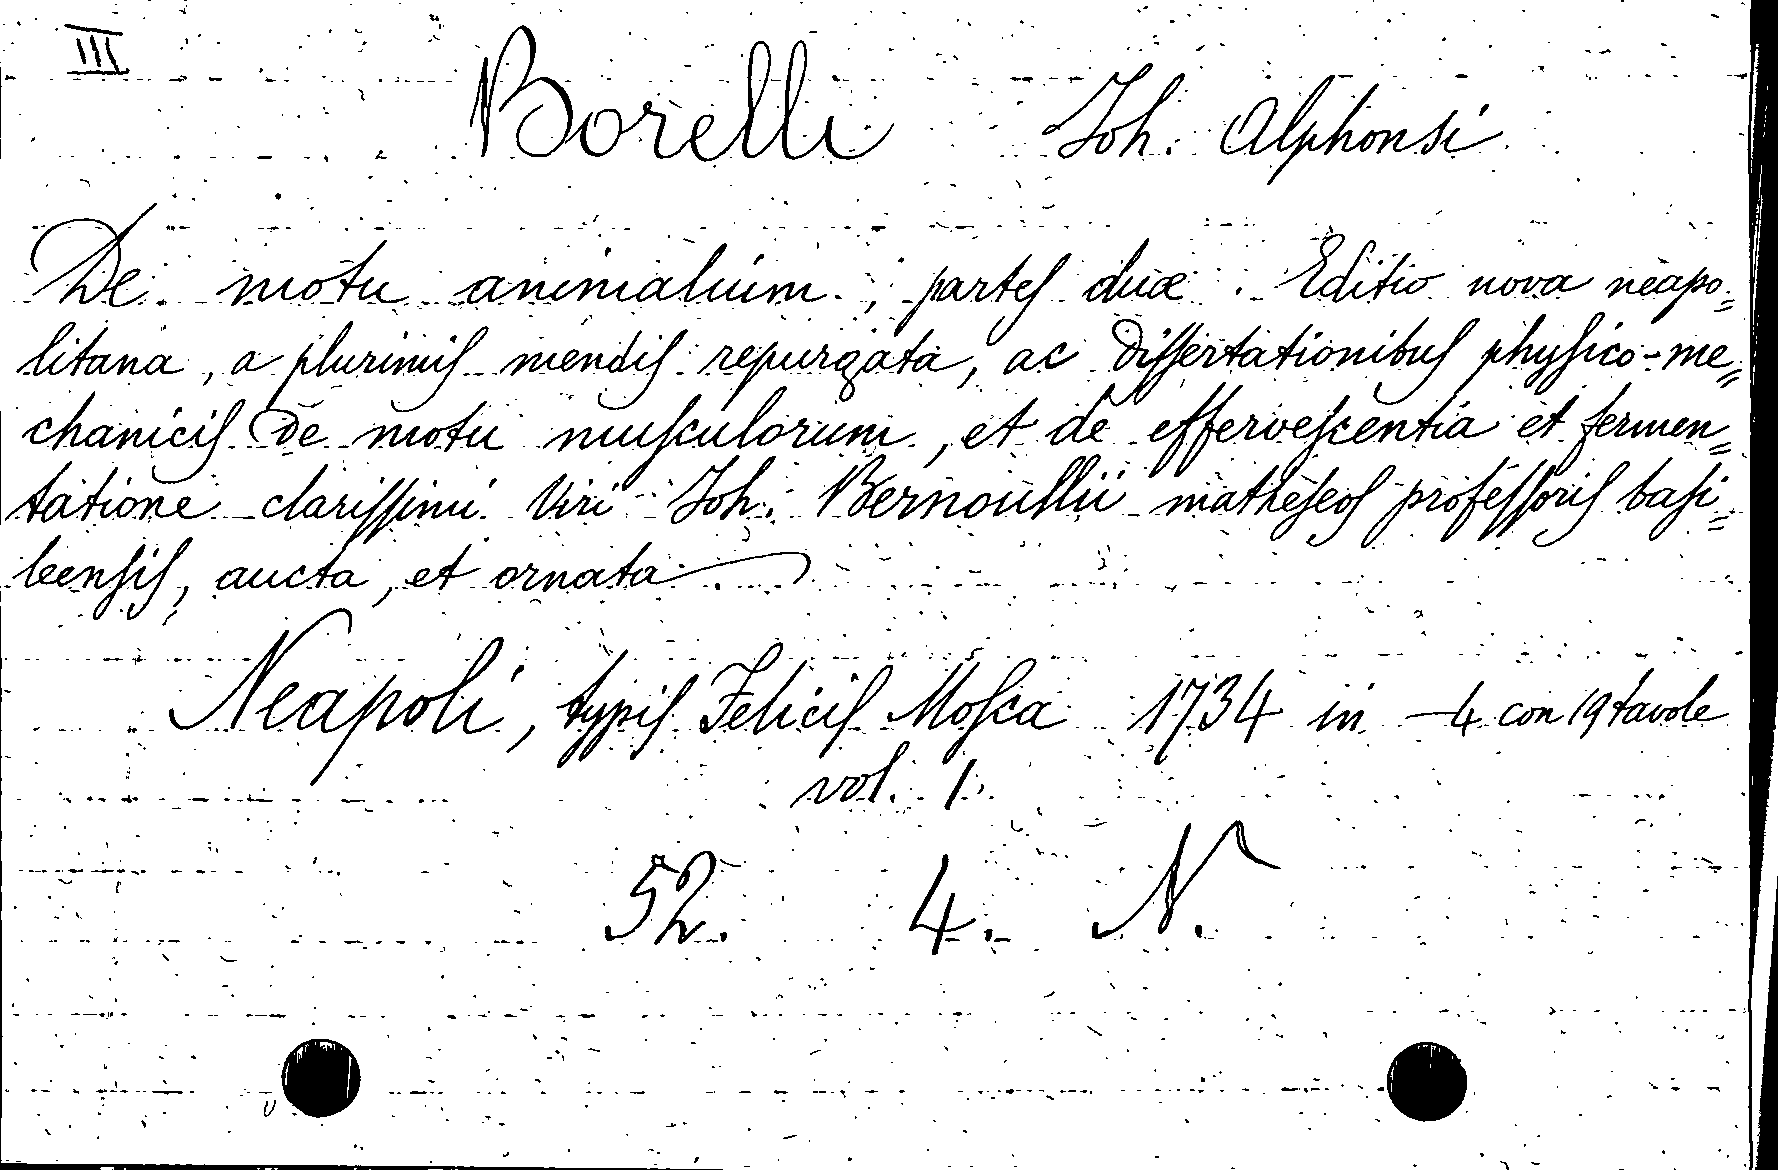 III
Borelli Joh. Alphonsi
De motu animalium; partes duæ. Editio nova neapo=
litana, a plurimis mendis repurgata, ac Dissertationibus physico-me=
chanicis De motu musculorum, et de effervescentia et fermen=
tatione clarissimi Viri Joh. Bernoullii matheseos professoris basi=
leensis, aucta, et ornata
Neapoli, typis Felicis Mosca 1734 in 4 con 19 tavole
vol. 1.
52. 4. N.